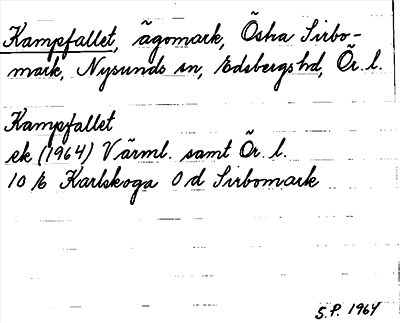 Kampfallet, ägomark, Östra Sirbo-
mark, Nysunds sn, Edsbergs hd, Ör. l.
Kampfallet
ek (1964) Värml. samt Ör. l.
10 6 Karlskoga 0 d Sirbomark
S.P. 1964